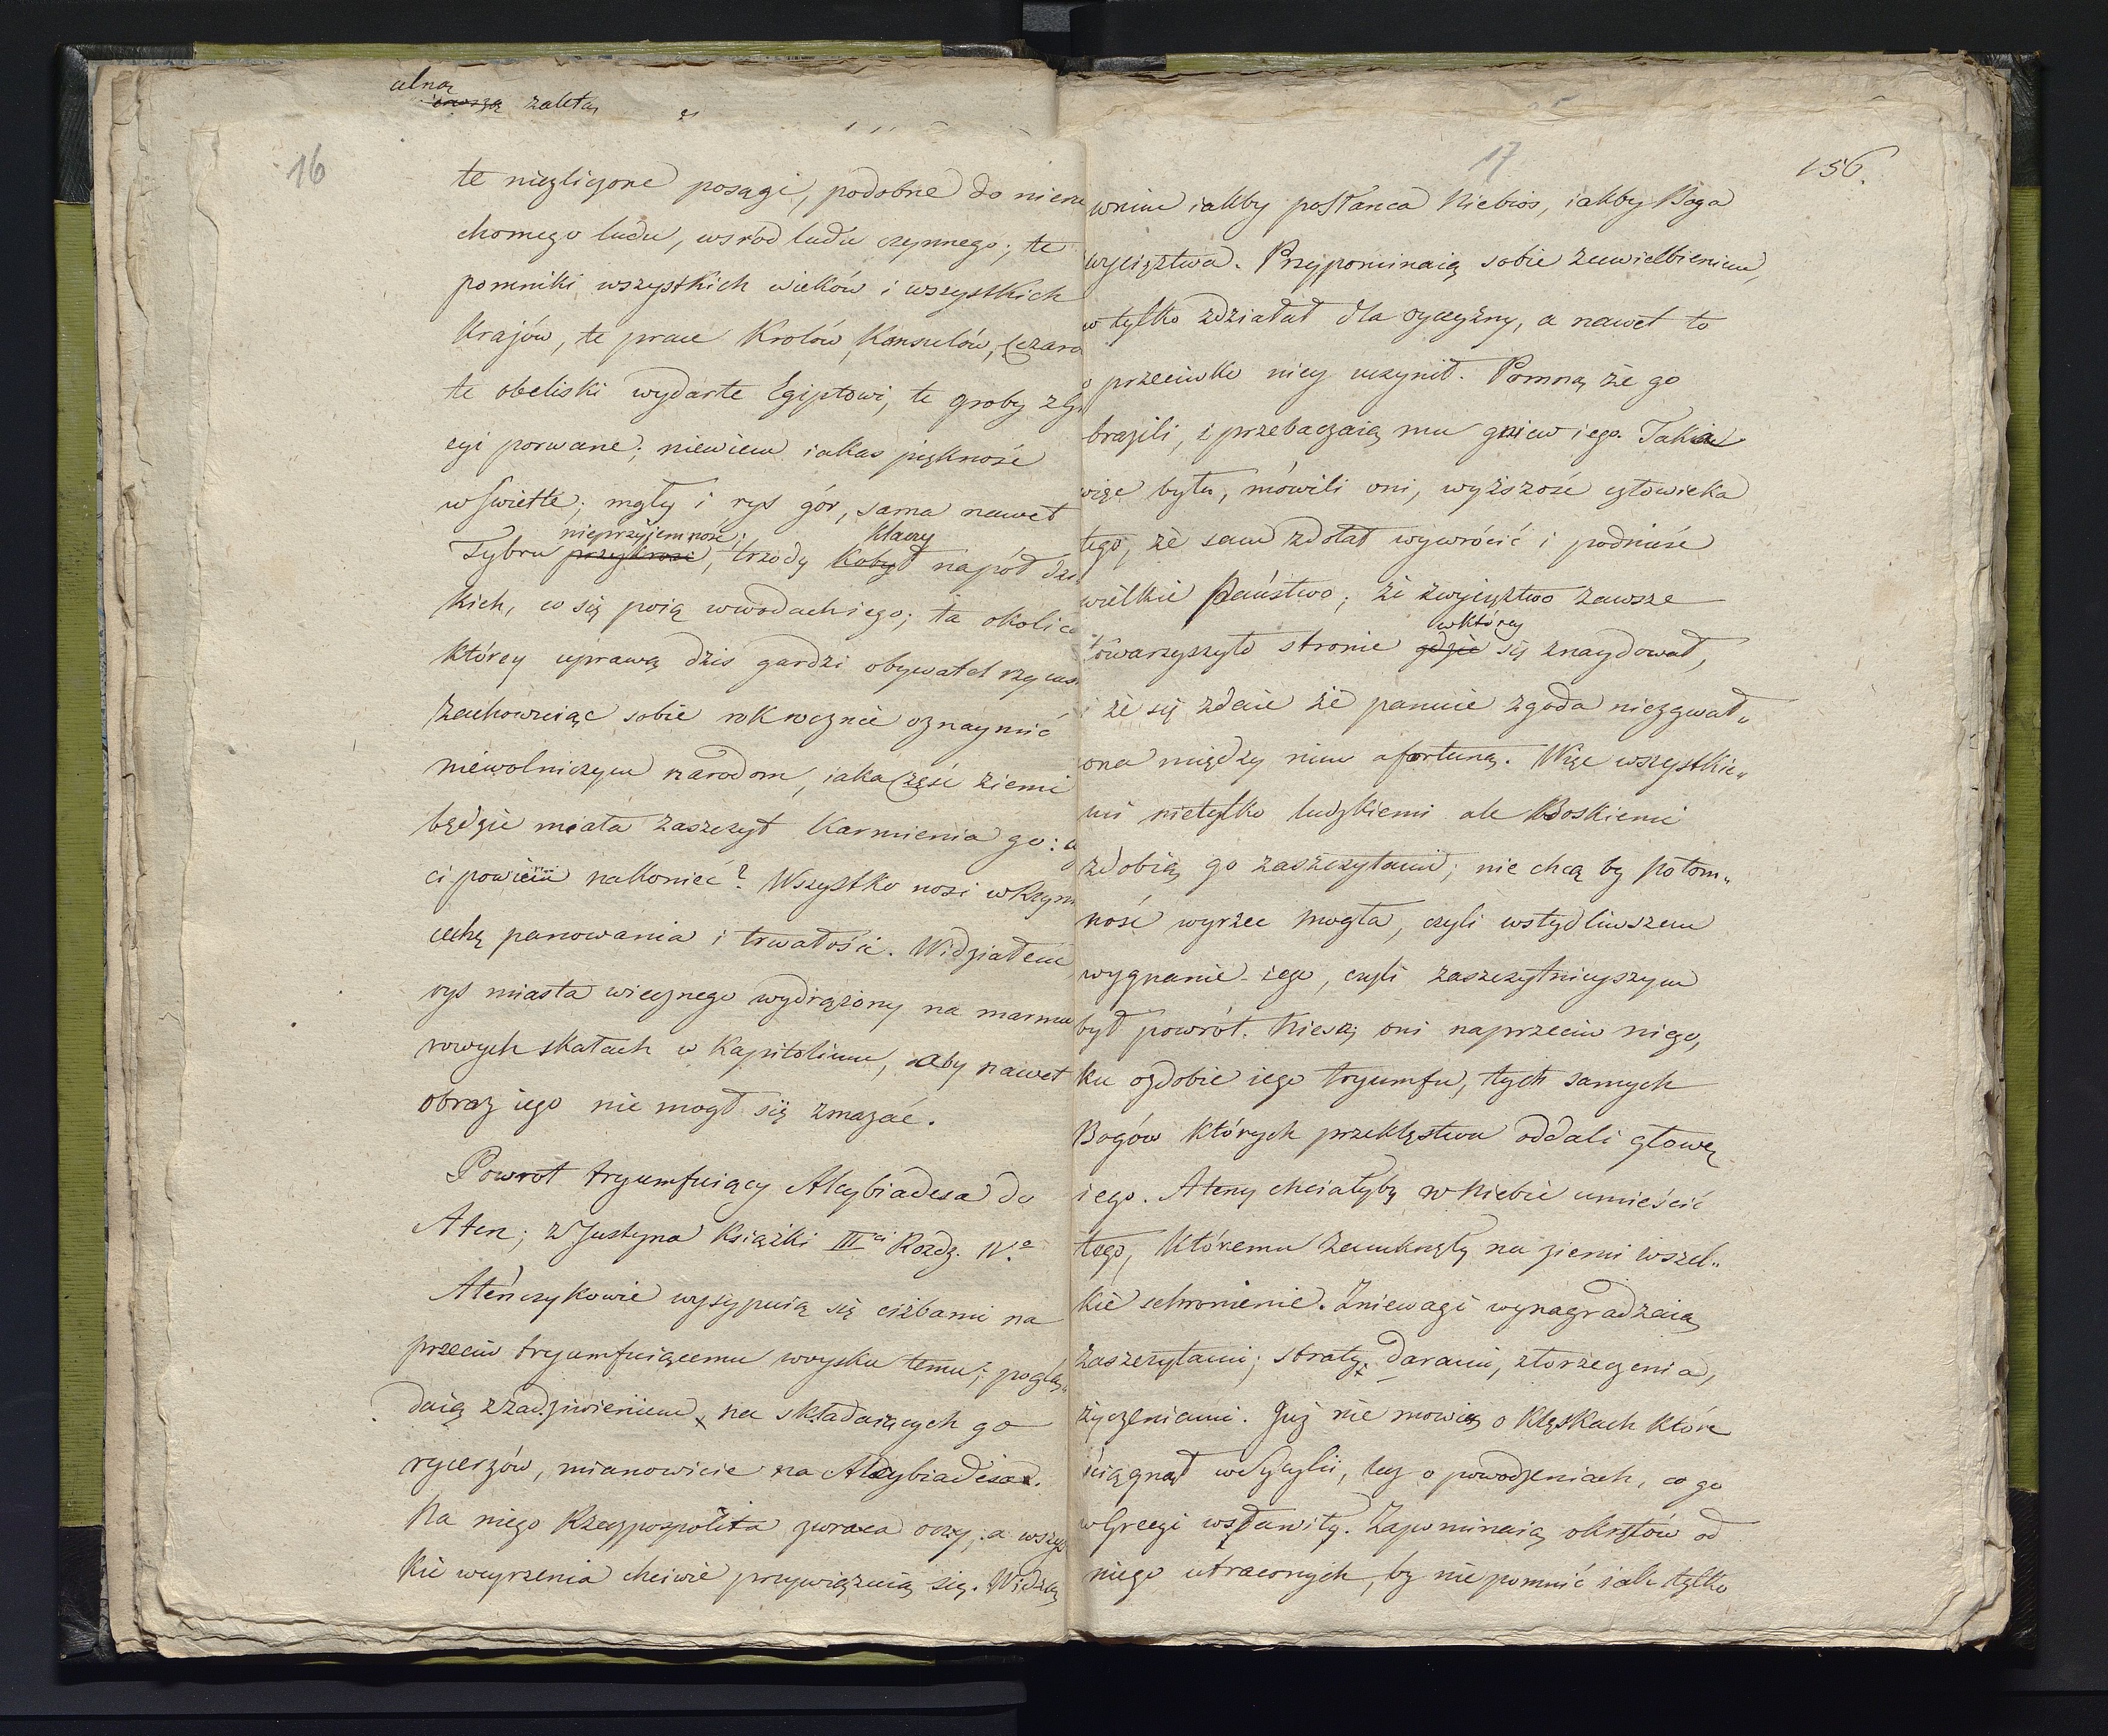 alną
zaletą
16
te niezliczone posągi, podobne do nieru
chomego ludu, wsród ludu czynnego; te
pomniki wszystkich wieków i wszystkich
Krajów, te prace Krolów, Konsulów, Cezaró
te obeliski wydarte Egiptowi, te groby z Gr
cyi porwane; niewiem iakas piękność
w Swietle; mgły i rys gór, sama nawet
nieprzyjemność; klaczy
Tybru przykrość, trzody Kobył napół dzi
kich, co się poią w wodach iego; ta okolica
którey uprawą dzis gardzi obywatel rzyms
zachowuiąc sobie rokrocznie oznaymić
niewolniczym narodom, iaka część ziemi
będzie miała zaszczyt Karmienia go:
ci powiem nakoniec? Wszystko nosi w Rzym
cechę panowania i trwałości. Widziałem
rys miasta wiecznego wydrążony na marmu
rowych skałach w Kapitolium, aby nawet
obraz iego nie mogł się zmazać.
Powrot tryumfuiący Alcybiadesa do
Aten; z Justyna Książki III ci Rozdz. IV.o
Ateńczykowie wysypuią się ciżbami na
przeciw tryumfuiącemu woysku temu; poglą„
daią z zadziwieniem na składaiących go
rycerzów, mianowicie na Alcybiadesa.
Na niego Rzeczpospolita zwraca oczy, a wszys
kie weyrzenia chciwie przywiązuią się. Widzą
17
156.
w nim iakby posłanca Niebios, iakby Boga
wycięztwa. Przypominaią sobie z uwielbieniem,
tylko zdziałał dla oyczyzny, a nawet to
przeciwko niey uczynił. Pomną że go
brazili, i przebaczaią mu gniew iego. Taka
więc była, mówili oni, wyższość człowieka
tego, że sam zdołał wywrócić i podnieść
wielkie Państwo; że zwycięztwo zawsze
w którey
towarzyszyło stronie gdzie się znaydował,
i że się zdaie że panuie zgoda niezgwał„
cona między nim a fortuną. Więc wszystkie„
mi nietylko ludzkiemi ale Boskiemi
zdobią go zaszczytami; nie chcą by potom„
ność wyrzec mogła, czyli wstydliwszem
wygnanie iego, czyli zaszczytnieyszym
był powrót. Niesą oni naprzeciw niego,
ku ozdobie iego tryumfu, tych samych
Bogów których przeklęstwu oddali głowę
iego. Ateny chciałyby w Niebie umieścić
tego, któremu zamknęły na ziemi wszel„
kie schronienie. Zniewagi wynagradzaią
zaszczytami; straty, darami, złorzeczenia,
życzeniami. Już nie mowią o klęskach które
ściągnął w Sycylii, lecz o powodzeniach, co go
w Grecyi wsławiły. Zapominaią okrętów od
niego utraconych, by nie pomnić iak tylko